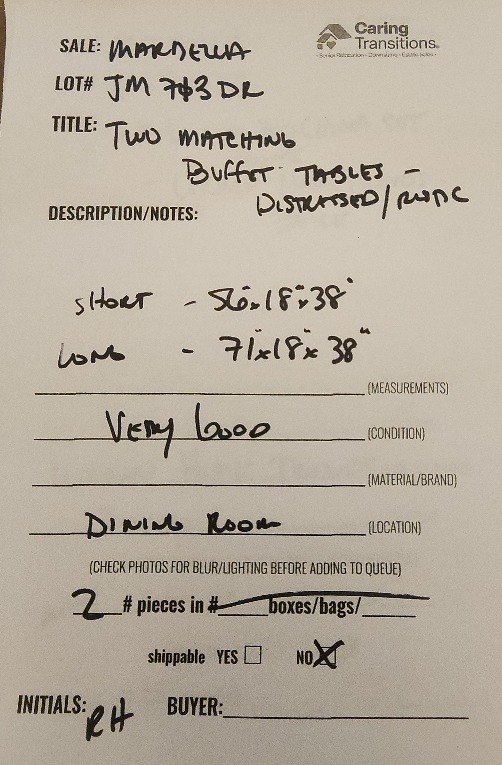 Caring
Transitions®
Senior Relocation • Downsizing • Estate Sales
SALE: MARDELLA
LOT# JM 703 DR
TITLE: TWO MATCHING
BUFFET TABLES -
DISTRESSED/RUSTIC
DESCRIPTION/NOTES:
SHORT - 56"x18"x38"
LONG - 71"x18"x38"
(MEASUREMENTS)
VERY GOOD (CONDITION)
(MATERIAL/BRAND)
DINING ROOM (LOCATION)
(CHECK PHOTOS FOR BLUR/LIGHTING BEFORE ADDING TO QUEUE)
2 # pieces in # boxes/bags/
shippable YES NO
INITIALS: RH BUYER: